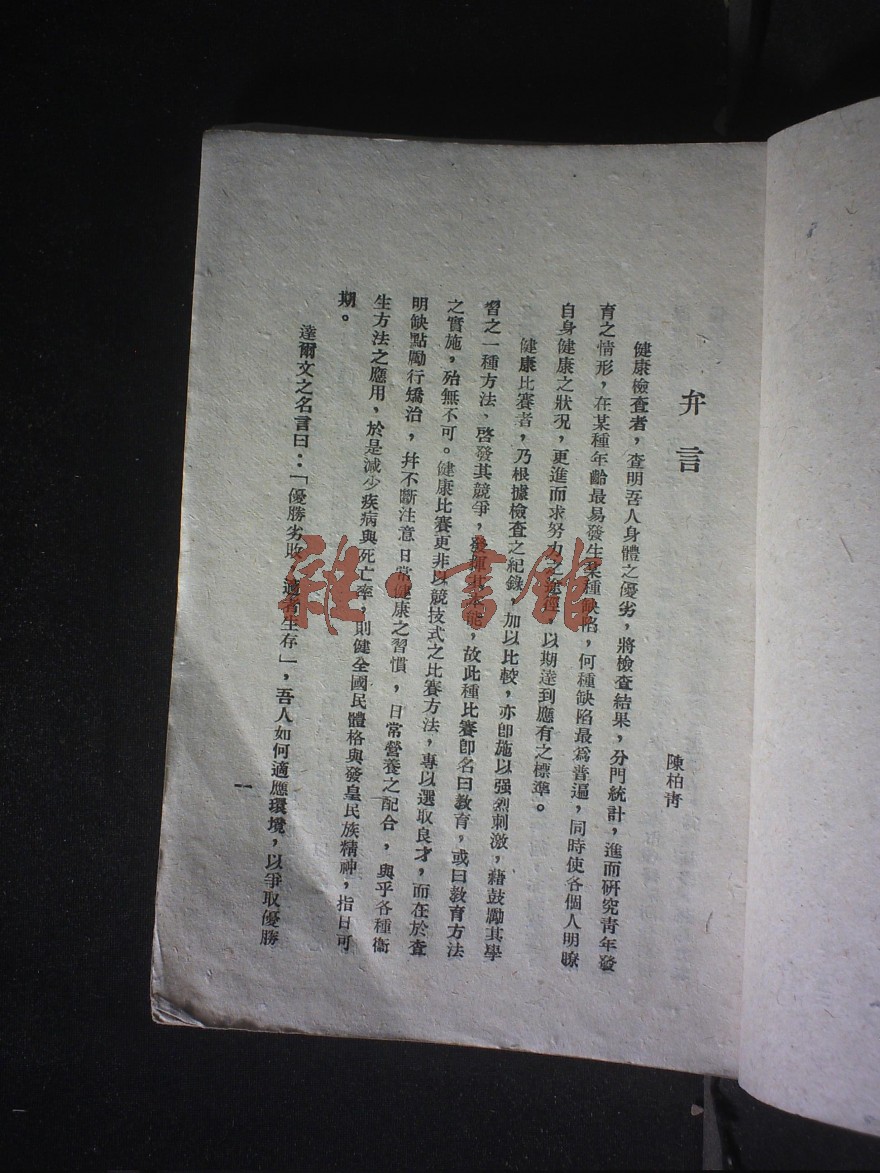 弁言
陳柏青
健康檢查者，查明吾人身體之優劣，將檢查結果，分門統計，進而研究青年發
育之情形，在某種年齡最易發生某種缺陷，何種缺陷最爲普遍，同時使各個人明瞭
自身健康之狀況，更進而求努力之途徑，以期達到應有之標準。
健康比賽者，乃根據檢查之紀錄，加以比較，亦卽施以强烈刺激，藉鼓勵其學
習之一種方法、啓發其競爭，發揮其本能，故此種比賽卽名曰教育，或曰教育方法
之實施，殆無不可。健康比賽更非以競技式之比賽方法，專以選取良才，而在於查
明缺點勵行矯治，幷不斷注意日常健康之習慣，日常營養之配合，與乎各種衞
生方法之應用、於是減少疾病與死亡率，則健全國民體格與發皇民族精神，指日可
期。
達爾文之名言曰：「優勝劣敗，適者生存」，吾人如何適應環境，以爭取優勝
一
雜·書館